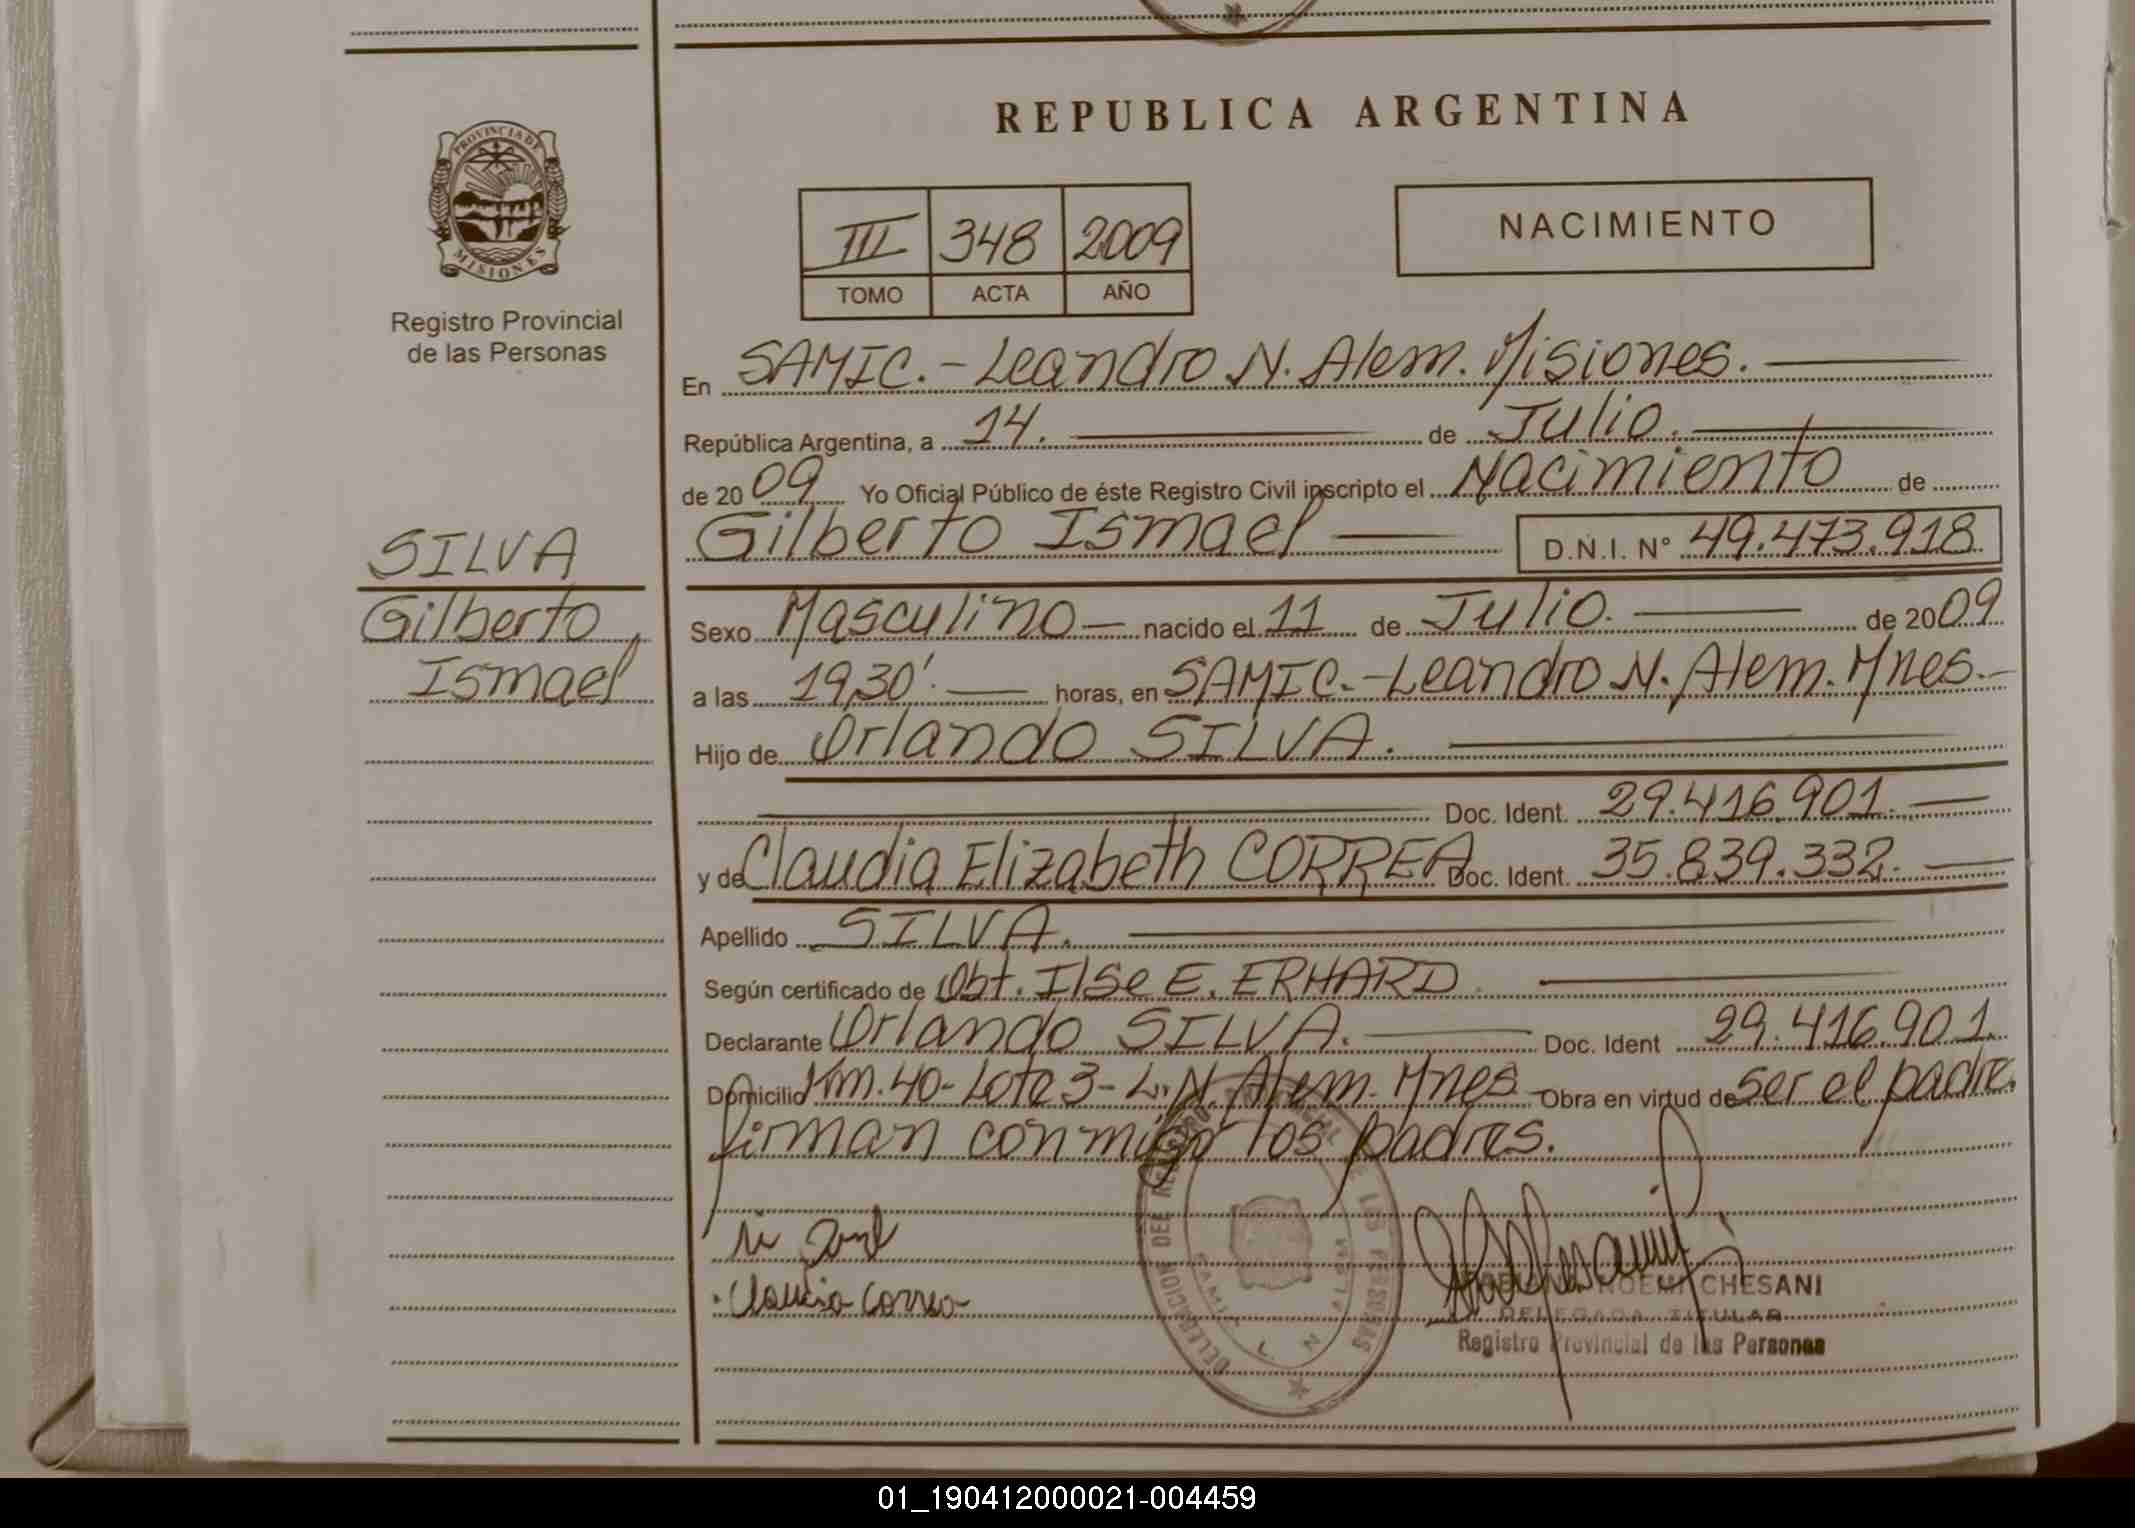 REPUBLICA ARGENTINA
PROVINCIA DE
MISIONES
Registro Provincial
de las Personas
III 348 2009
TOMO ACTA AÑO
NACIMIENTO
En SAMIC.-Leandro N. Alem. Misiones.
República Argentina, a 14. de Julio.
de 2009 Yo Oficial Público de éste Registro Civil inscripto el Nacimiento de
Gilberto Ismael D.N.I. N° 49.473.918
SILVA
Gilberto
Ismael
Sexo Masculino nacido el 11 de Julio. de 2009
a las 19,30'. horas, en SAMIC.-Leandro N. Alem. Mnes.-
Hijo de Orlando SILVA.
Doc. Ident. 29.416.901.
y de Claudia Elizabeth CORREA Doc. Ident. 35.839.332.
Apellido SILVA.
Según certificado de Obt. Ilse E. ERHARD
Declarante Orlando SILVA. Doc. Ident 29.416.901.
Domicilio Km.40-Lote 3-L.N. Alem. Mnes Obra en virtud de ser el padre.
firman conmigo los padres.
DELEGACION DEL REGISTRO PROVINCIAL DE LAS PERSONAS
SAMIC L N ALEM
Claudia Correa
NOEMI CHESANI
DELEGADA TITULAR
Registro Provincial de las Personas
01_190412000021-004459